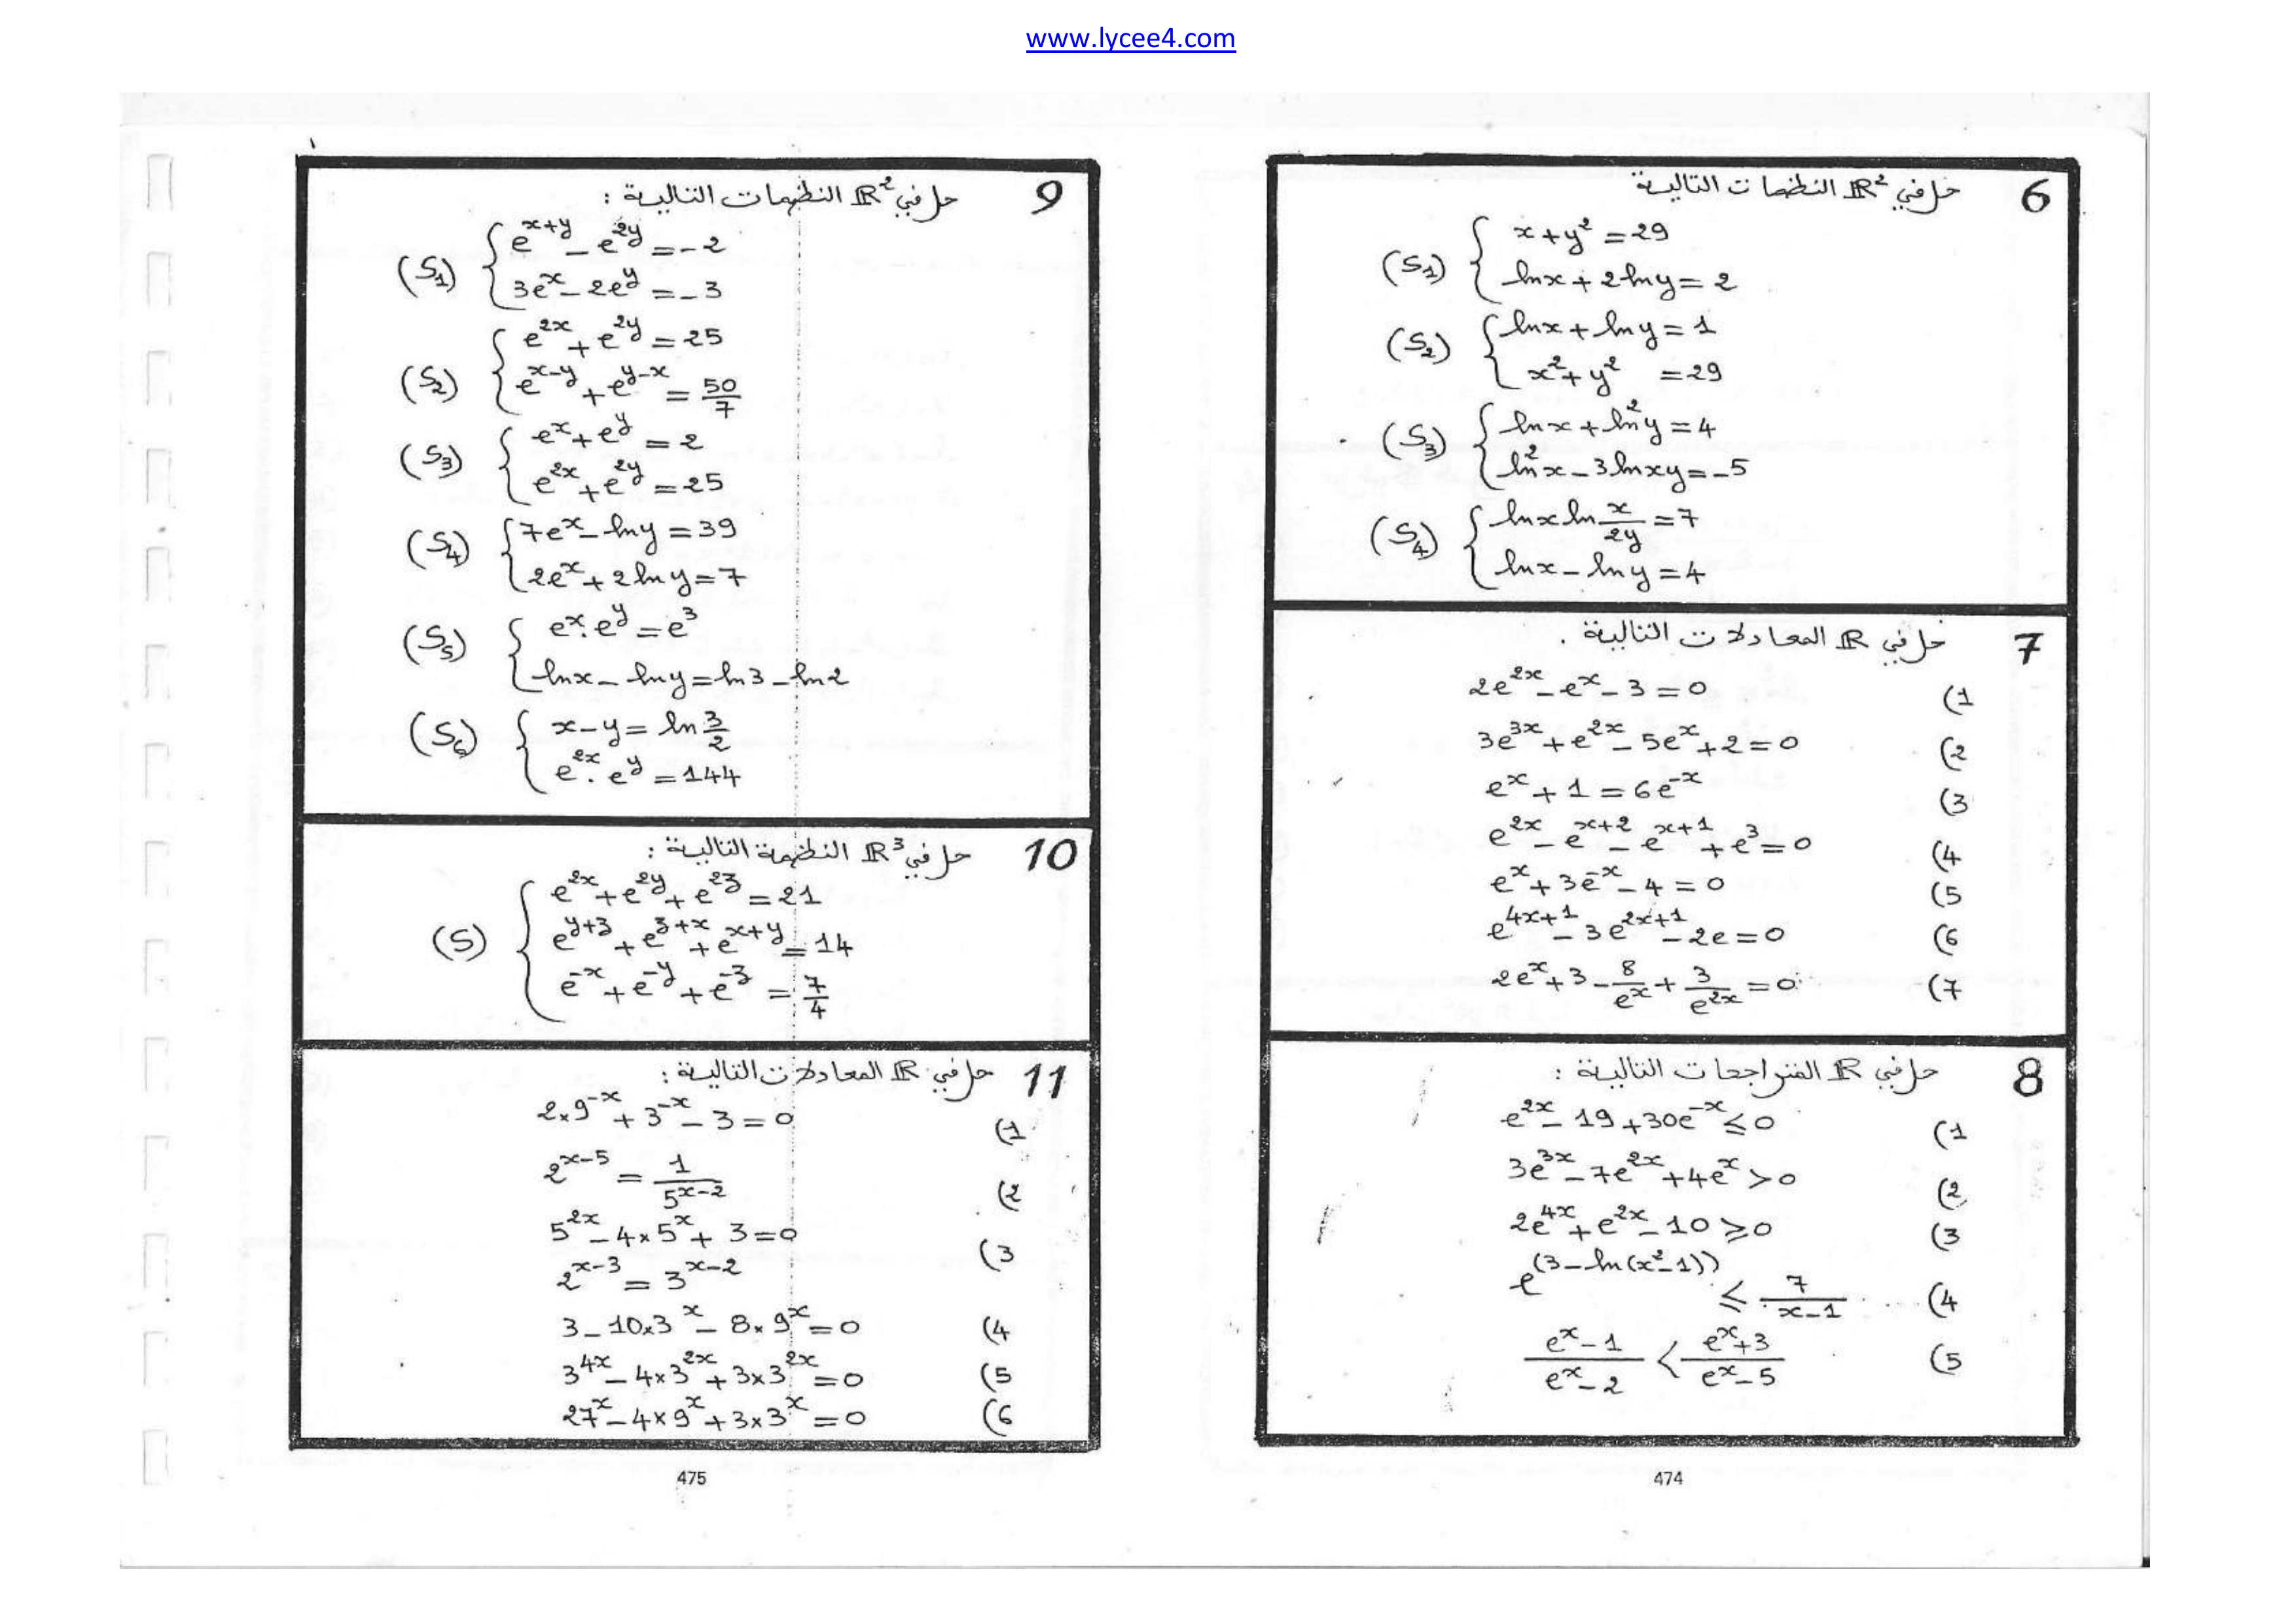 www.lycee4.com
6 حل في ℝ² النظمات التالية
(S₁) { x + y² = 29
lnx + 2lny = 2
(S₂) { lnx + lny = 1
x² + y² = 29
(S₃) { lnx + ln²y = 4
ln²x - 3lnxy = -5
(S₄) { lnx ln x/2y = 7
lnx - lny = 4
7 حل في ℝ المعادلات التالية .
2e²ˣ - eˣ - 3 = 0 (1
3e³ˣ + e²ˣ - 5eˣ + 2 = 0 (2
eˣ + 1 = 6e⁻ˣ (3
e²ˣ - eˣ⁺² - eˣ⁺¹ + e³ = 0 (4
eˣ + 3e⁻ˣ - 4 = 0 (5
e⁴ˣ⁺¹ - 3e²ˣ⁺¹ - 2e = 0 (6
2eˣ + 3 - 8/eˣ + 3/e²ˣ = 0 (7
8 حل في ℝ المتراجحات التالية :
e²ˣ - 19 + 30e⁻ˣ ⩽ 0 (1
3e³ˣ - 7e²ˣ + 4eˣ > 0 (2
2e⁴ˣ + e²ˣ - 10 ⩾ 0 (3
e^(3 - ln(x² - 1)) ⩽ 7/x-1 (4
eˣ - 1/eˣ - 2 < eˣ + 3/eˣ - 5 (5
474
9 حل في ℝ² النظمات التالية :
(S₁) { eˣ⁺ʸ - e²ʸ = -2
3eˣ - 2eʸ = -3
(S₂) { e²ˣ + e²ʸ = 25
eˣ⁻ʸ + eʸ⁻ˣ = 50/7
(S₃) { eˣ + eʸ = 2
e²ˣ + e²ʸ = 25
(S₄) { 7eˣ - lny = 39
2eˣ + 2lny = 7
(S₅) { eˣ . eʸ = e³
lnx - lny = ln3 - ln2
(S₆) { x - y = ln 3/2
e²ˣ . eʸ = 144
10 حل في ℝ³ النظمة التالية :
(S) { e²ˣ + e²ʸ + e²ᶻ = 21
eʸ⁺ᶻ + eᶻ⁺ˣ + eˣ⁺ʸ = 14
e⁻ˣ + e⁻ʸ + e⁻ᶻ = 7/4
11 حل في ℝ المعادلات التالية :
2×9⁻ˣ + 3⁻ˣ - 3 = 0 (1
2ˣ⁻⁵ = 1/5ˣ⁻² (2
5²ˣ - 4×5ˣ + 3 = 0 (3
2ˣ⁻³ = 3ˣ⁻²
3 - 10×3ˣ - 8×9ˣ = 0 (4
3⁴ˣ - 4×3²ˣ + 3×3²ˣ = 0 (5
27ˣ - 4×9ˣ + 3×3ˣ = 0 (6
475